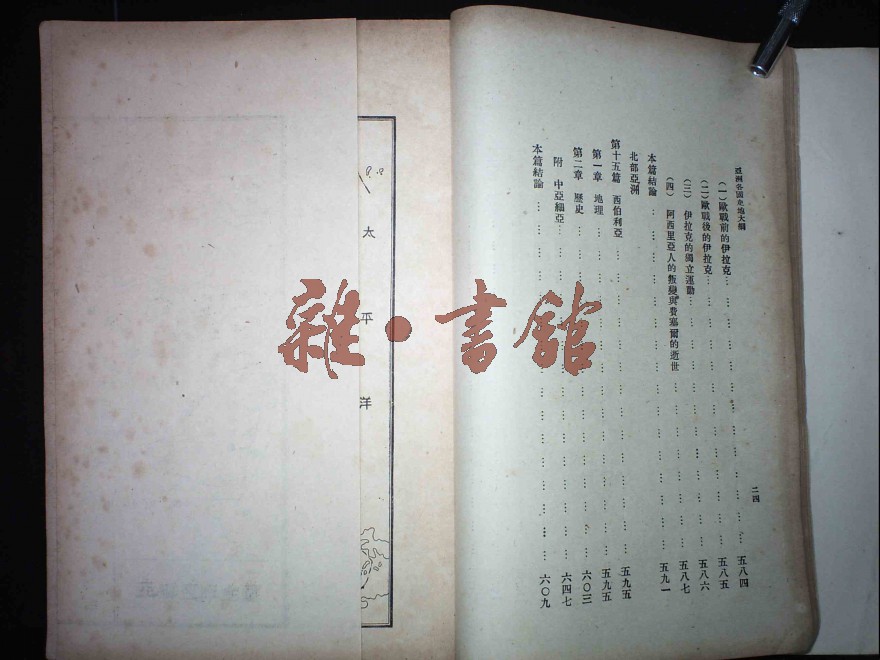 亞洲各國史地大綱
二四
(一)歐戰前的伊拉克……………………五八四
(二)歐戰後的伊拉克……………………五八五
(三)伊拉克的獨立運動……………………五八六
(四)阿西里亞人的叛變與費塞爾的逝世……………………五八七
本篇結論……………………五九一
北部亞洲
第十五篇 西伯利亞……………………五九五
第一章 地理……………………五九五
第二章 歷史……………………六〇三
附 中亞細亞……………………六四七
本篇結論……………………六〇九
太平洋
雜·書館